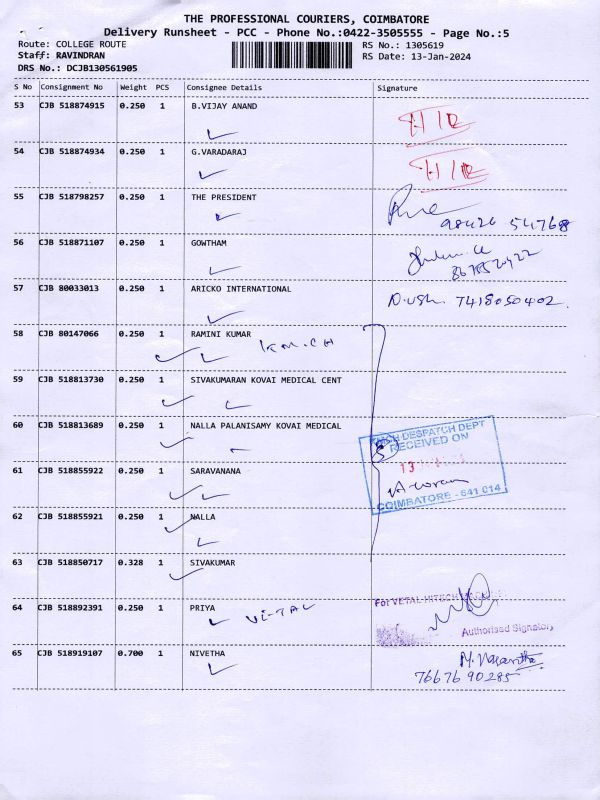 THE PROFESSIONAL COURIERS, COIMBATORE
Delivery Runsheet - PCC - Phone No.:0422-3505555 - Page No.:5
Route: COLLEGE ROUTE RS No.: 1305619
Staff: RAVINDRAN RS Date: 13-Jan-2024
DRS No.: DCJB130561905
S No Consignment No Weight PCS Consignee Details Signature
53 CJB 518874915 0.250 1 B.VIJAY ANAND
54 CJB 518874934 0.250 1 G.VARADARAJ
55 CJB 518798257 0.250 1 THE PRESIDENT
98426 54768
56 CJB 518871107 0.250 1 GOWTHAM
57 CJB 80033013 0.250 1 ARICKO INTERNATIONAL
7418050402
58 CJB 80147066 0.250 1 RAMINI KUMAR
K.M.CH
59 CJB 518813730 0.250 1 SIVAKUMARAN KOVAI MEDICAL CENT
60 CJB 518813689 0.250 1 NALLA PALANISAMY KOVAI MEDICAL
DESPATCH DEPT
RECEIVED ON
13
61 CJB 518855922 0.250 1 SARAVANANA
COIMBATORE - 641 014
62 CJB 518855921 0.250 1 NALLA
63 CJB 518850717 0.328 1 SIVAKUMAR
64 CJB 518892391 0.250 1 PRIYA
For VETAL HITECH
Authorised Signatory
65 CJB 518919107 0.700 1 NIVETHA
76676 90285